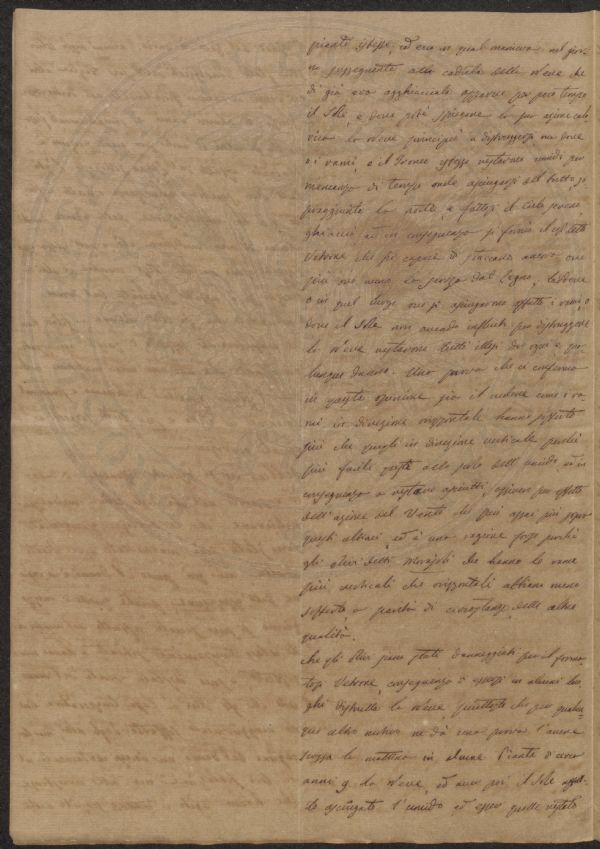 piante istesse, ed ecco in qual maniera: nel gior
no susseguente alla caduta della Neve che
di già era agghiacciata apparve per poco tempo
il Sole, e dove potè spiegare la sua azione calo
rica la Neve principiò a distruggersi ma dove
o i rami, o il Tronco istesso restarono umidi per
mancanza di tempo onde asciugarsi del tutto, so
praggiunta la notte, e fattosi il Cielo sereno,
ghiacciò ed in conseguenza si formò il così detto
Vetrone che fu capace di staccare ancora ove
più ove meno la scorza dal Legno, laddove
o in quel luogo ove si asciugarono affatto i rami, o
dove il Sole non avendo influito per distruggere
la Neve restarono tutti illesi da ogni e qua
lunque danno. Una prova che ci conferma
in questa opinione sia il vedere come i ra
mi in direzione orizzontale hanno sofferto
più che quegli in direzione verticale perchè
più facile presta allo scolo dell'umido ed in
conseguenza a restare asciutti, ossivero per effetto
dell'azione del Vento che può assai più sopra
questi ultimi, ed è una ragione forse perchè
gli ulivi detti Morajoli che hanno le rame
più verticali che orizzontali abbiano meno
sofferto a parità di circostanze delle altre
qualità.
Che gli Ulivi siano stati danneggiati per il forma
tosi Vetrone, conseguenza di essersi in alcuni luo
ghi distrutta la Neve, piuttosto che per qualun
que altro motivo ne dà una prova l'avere
scossa la mattina in alcune Piante d'anco
anni 9 la Neve, ed ove poi il Sole
ha asciugato l'umido ed esser quelle restate